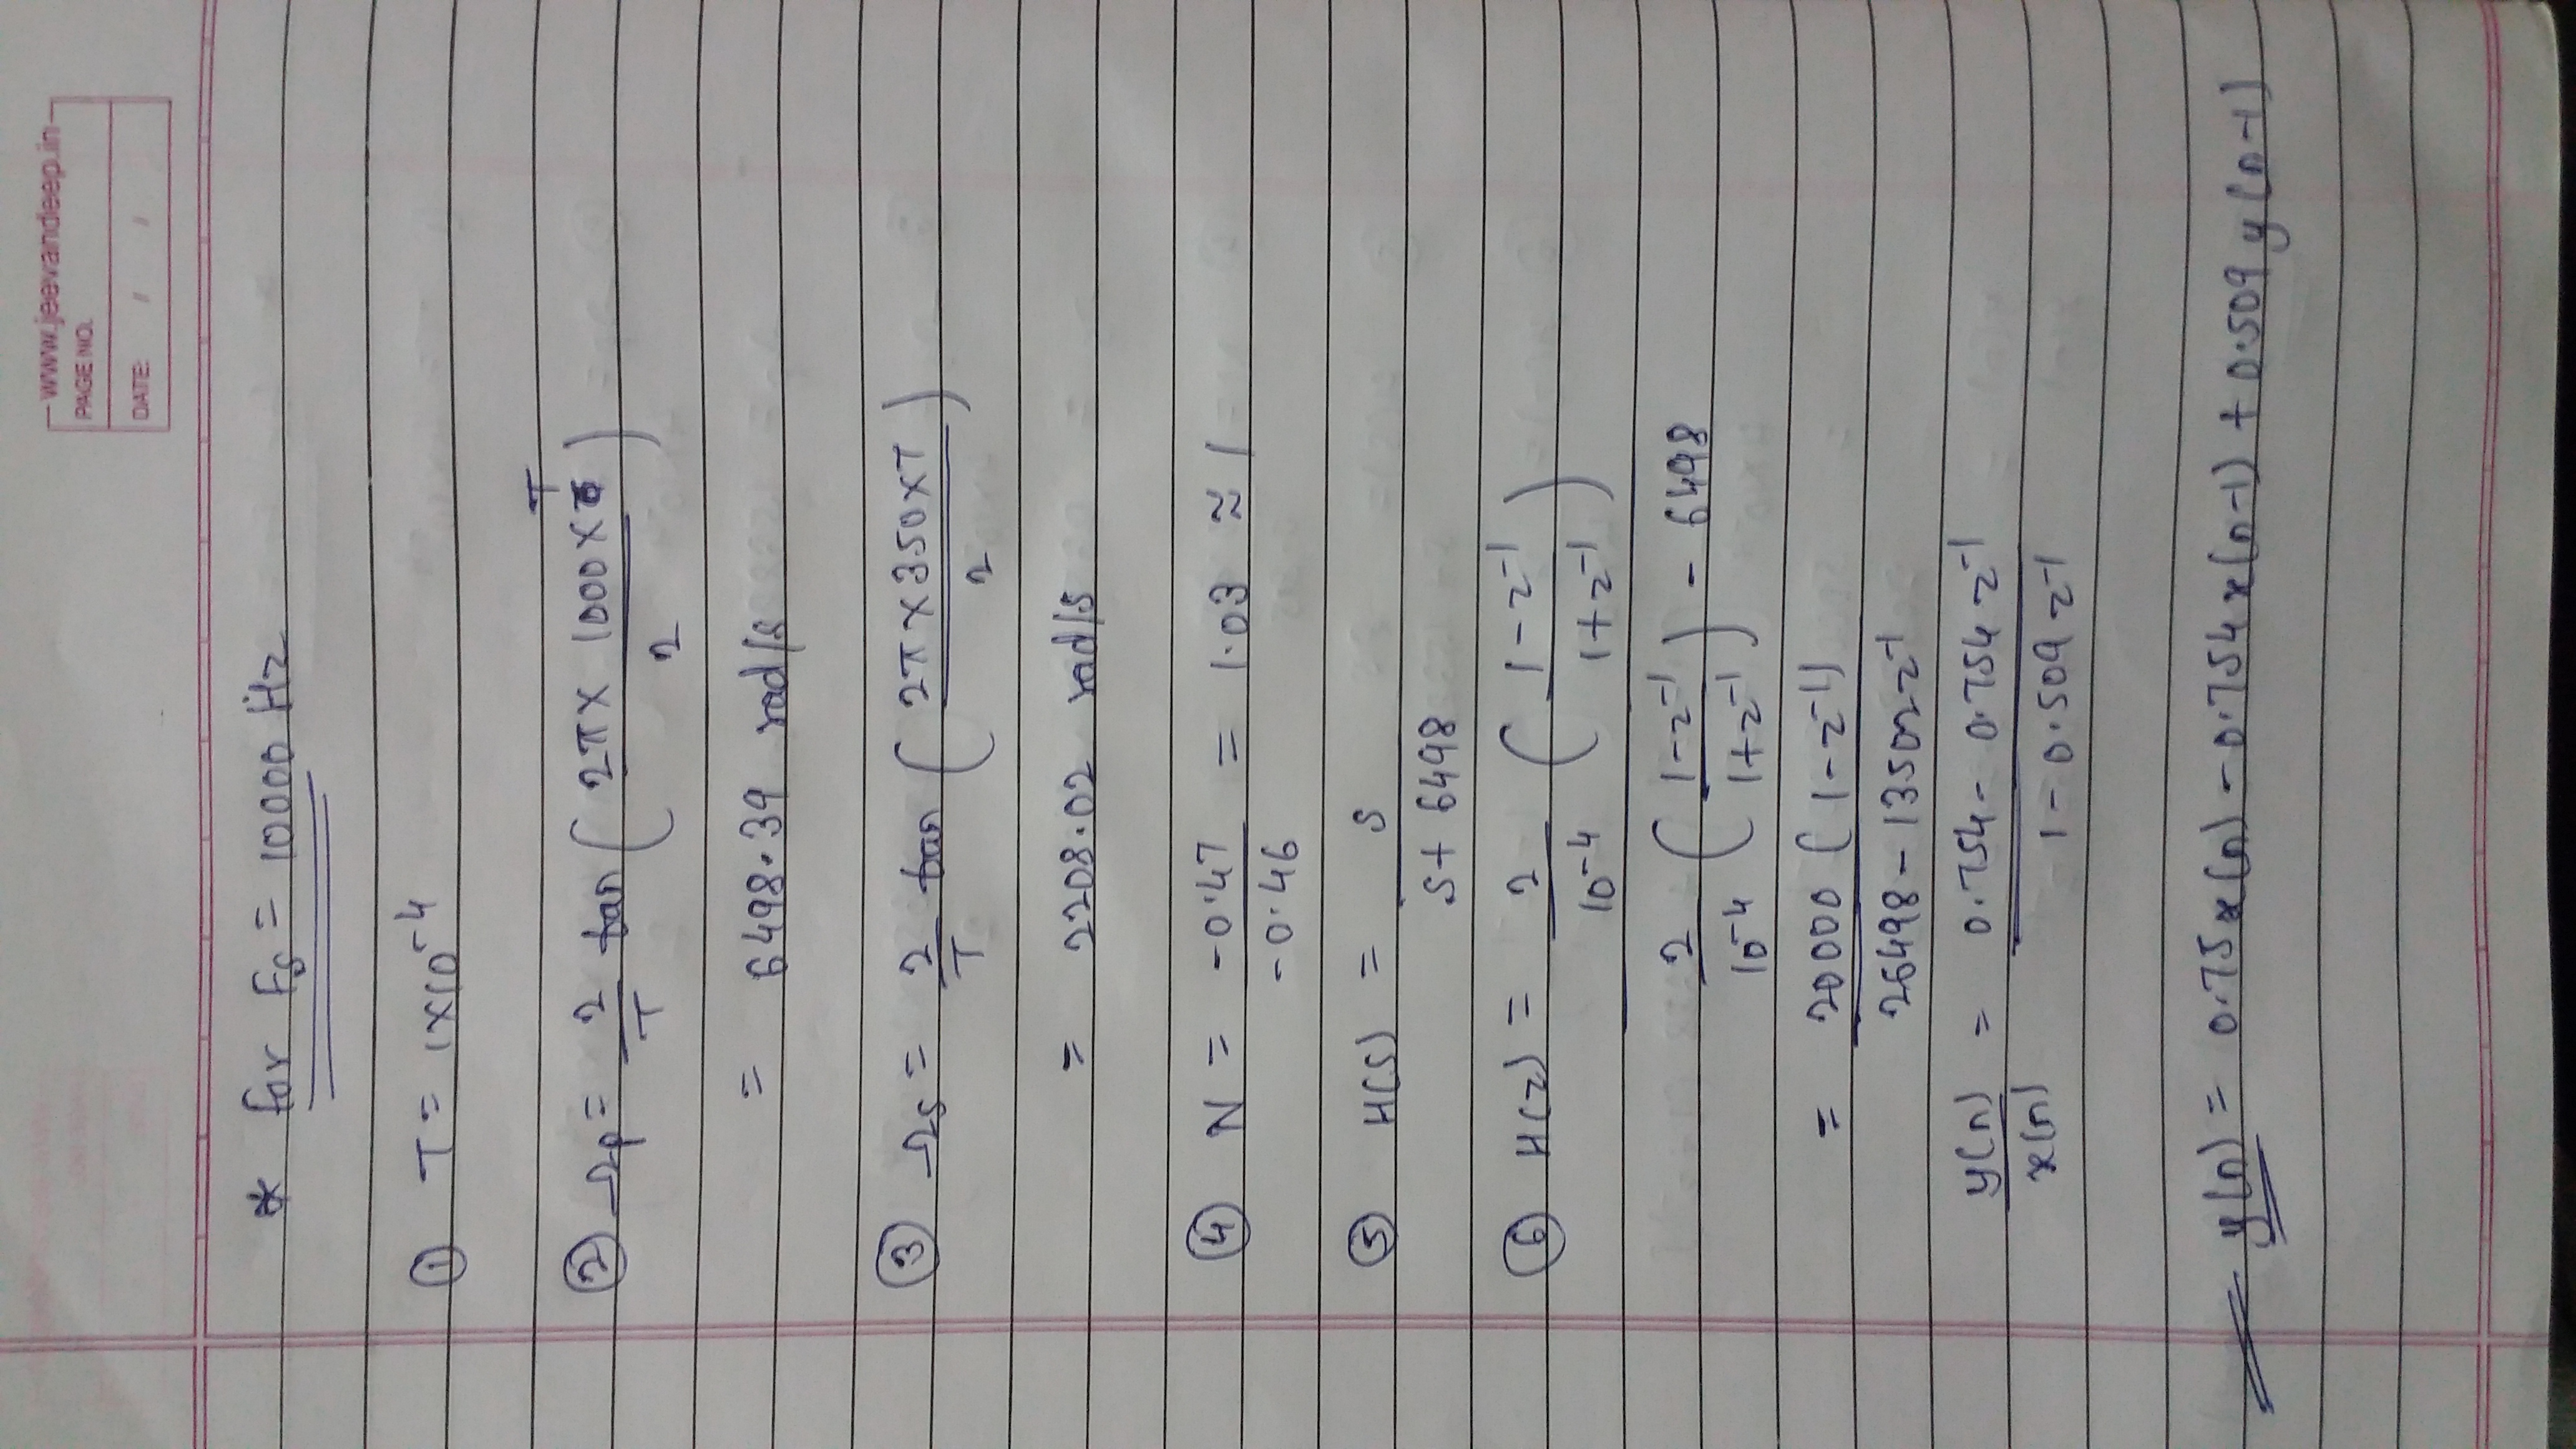 www.jeevandeep.in
PAGE NO.
DATE: / /
* for Fs = 10000 Hz
① T = 1×10⁻⁴
② Ωp = 2/T tan ( 2π × 1000 × T / 2 )
= 6498.39 rad/s
③ Ωs = 2/T tan ( 2π × 350 × T / 2 )
= 2208.02 rad/s
④ N = -0.47 / -0.46 = 1.03 ≈ 1
⑤ H(s) = s / s + 6498
⑥ H(z) = 2/10⁻⁴ ( 1 - z⁻¹ / 1 + z⁻¹ )
2/10⁻⁴ ( 1 - z⁻¹ / 1 + z⁻¹ ) - 6498
= 20000 ( 1 - z⁻¹ ) / 26498 - 13502 z⁻¹
y(n) / x(n) = 0.754 - 0.754 z⁻¹ / 1 - 0.509 z⁻¹
y(n) = 0.75 x(n) - 0.754 x(n-1) + 0.509 y(n-1)